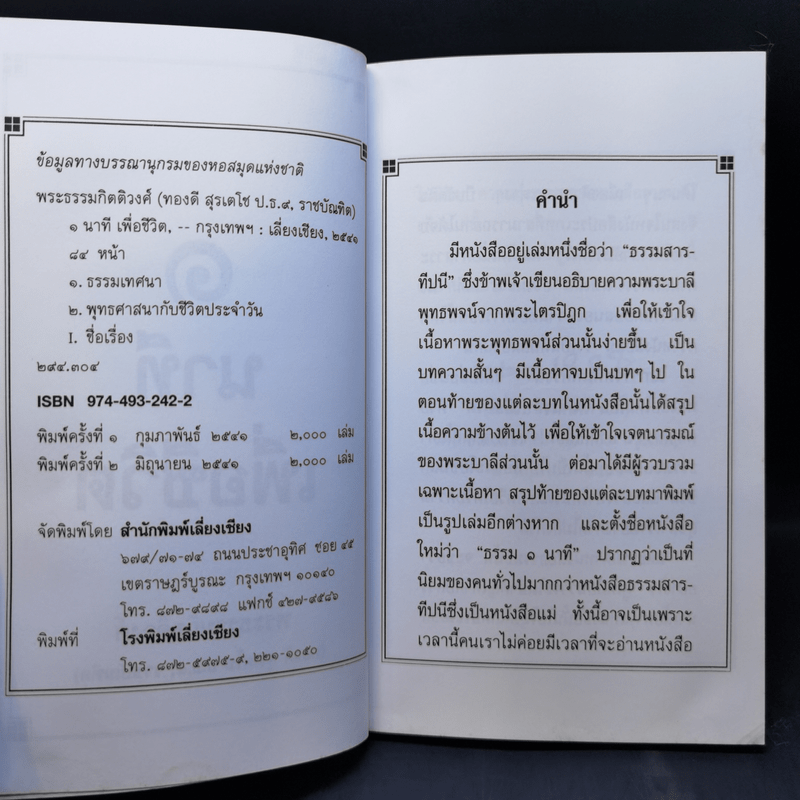 ข้อมูลทางบรรณานุกรมของหอสมุดแห่งชาติ
พระธรรมกิตติวงศ์ (ทองดี สุรเตโช ป.ธ.๙, ราชบัณฑิต)
๑ นาที เพื่อชีวิต, -- กรุงเทพฯ : เลี่ยงเชียง, ๒๕๔๑
๘๔ หน้า
๑. ธรรมเทศนา
๒. พุทธศาสนากับชีวิตประจำวัน
I. ชื่อเรื่อง
๒๙๔.๓๐๔
ISBN 974-493-242-2
พิมพ์ครั้งที่ ๑ กุมภาพันธ์ ๒๕๔๑ ๒,๐๐๐ เล่ม
พิมพ์ครั้งที่ ๒ มิถุนายน ๒๕๔๑ ๒,๐๐๐ เล่ม
จัดพิมพ์โดย สำนักพิมพ์เลี่ยงเชียง
๖๗๙/๗๑-๗๔ ถนนประชาอุทิศ ซอย ๔๕
เขตราษฎร์บูรณะ กรุงเทพฯ ๑๐๑๔๐
โทร. ๘๗๒-๙๘๙๘ แฟกซ์ ๔๒๗-๙๕๘๖
พิมพ์ที่ โรงพิมพ์เลี่ยงเชียง
โทร. ๘๗๒-๕๙๗๕-๙, ๒๒๑-๑๐๕๐
คำนำ
มีหนังสืออยู่เล่มหนึ่งชื่อว่า “ธรรมสาร-
ทีปนี” ซึ่งข้าพเจ้าเขียนอธิบายความพระบาลี
พุทธพจน์จากพระไตรปิฎก เพื่อให้เข้าใจ
เนื้อหาพระพุทธพจน์ส่วนนั้นง่ายขึ้น เป็น
บทความสั้นๆ มีเนื้อหาจบเป็นบทๆ ไป ใน
ตอนท้ายของแต่ละบทในหนังสือนั้นได้สรุป
เนื้อความข้างต้นไว้ เพื่อให้เข้าใจเจตนารมณ์
ของพระบาลีส่วนนั้น ต่อมาได้มีผู้รวบรวม
เฉพาะเนื้อหา สรุปท้ายของแต่ละบทมาพิมพ์
เป็นรูปเล่มอีกต่างหาก และตั้งชื่อหนังสือ
ใหม่ว่า “ธรรม ๑ นาที” ปรากฏว่าเป็นที่
นิยมของคนทั่วไปมากกว่าหนังสือธรรมสาร-
ทีปนีซึ่งเป็นหนังสือแม่ ทั้งนี้อาจเป็นเพราะ
เวลานี้คนเราไม่ค่อยมีเวลาที่จะอ่านหนังสือ